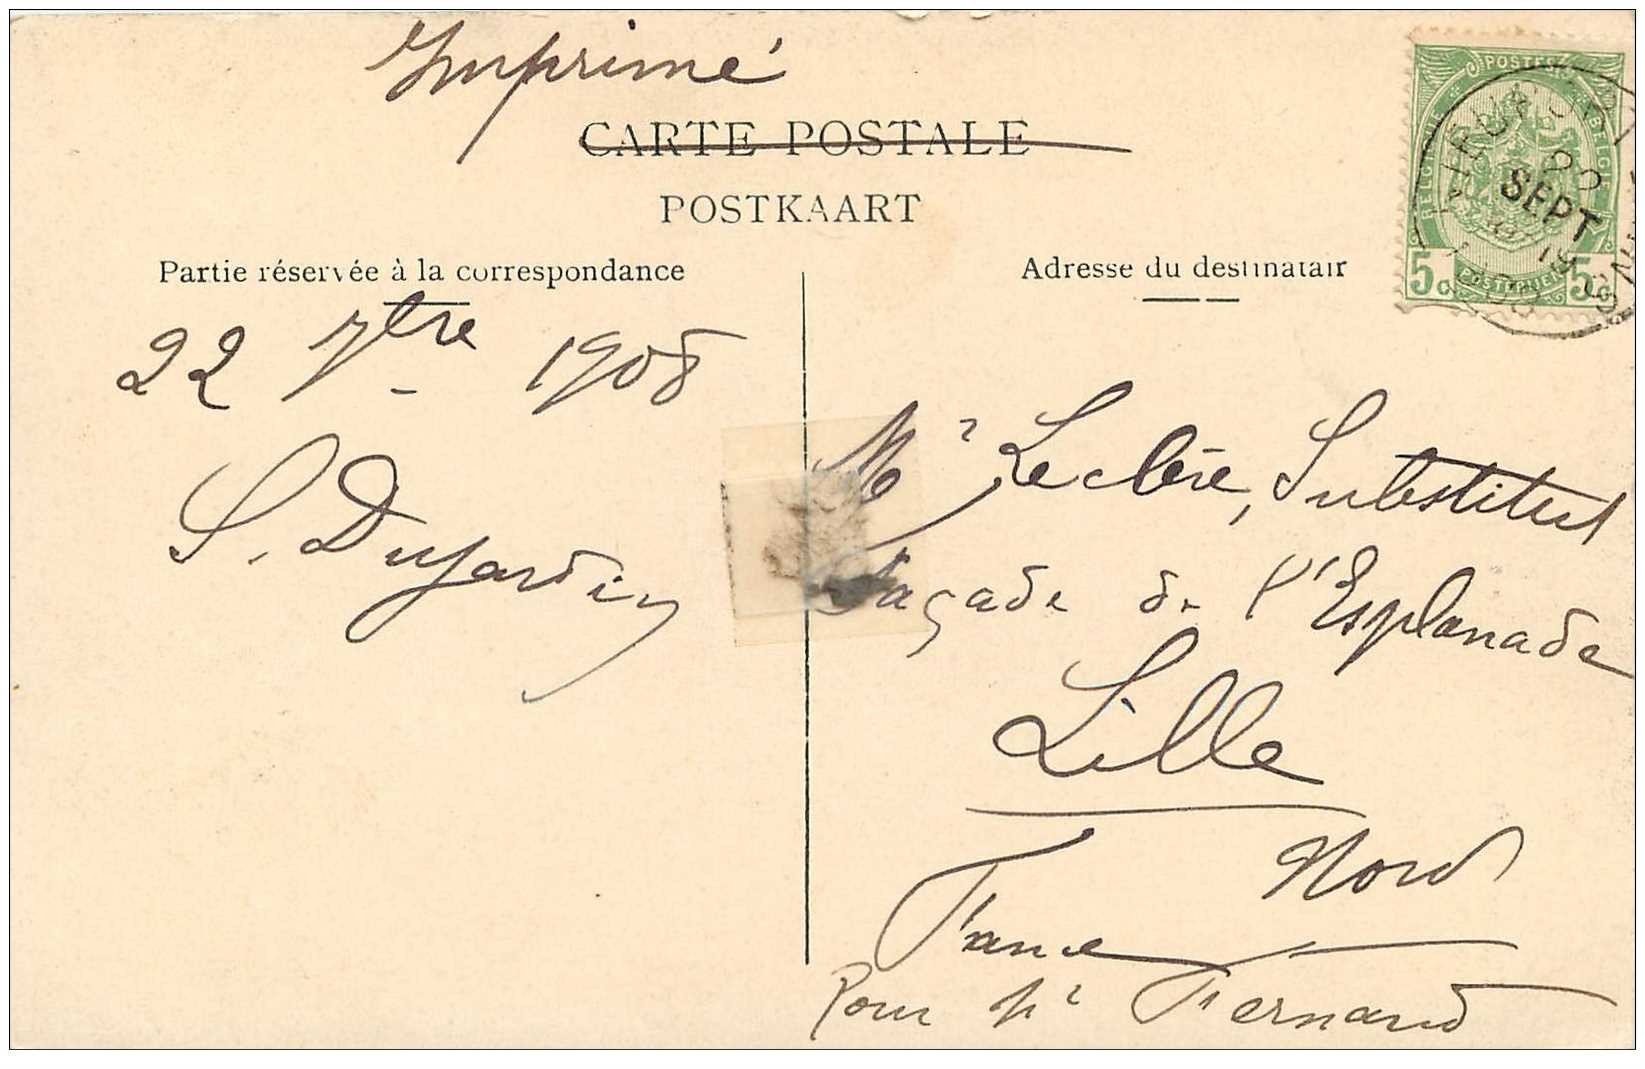 Imprimé
CARTE POSTALE
POSTKAART
Partie réservée à la correspondance
22 7tre 1908
S. Dujardin
Adresse du destinatair
Mr Leclère, Substitut
façade de l'Esplanade
Lille
Nord
France
Pour Mr Fernand
POSTES
5c 5c
22
SEPT